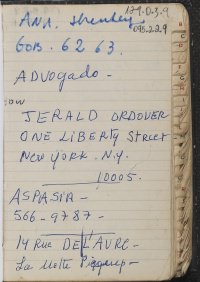 129.0.3.9
093.229
Ana. Shenley
GOB. 62 63.
ADVOgado -
OW
JERALD ORDOVER
ONE LIBERTY STREET
NEW YORK. N.Y.
10005.
ASPASIA -
566-9787-
14 RUE DE L'AVRE-
La Motte Picquep-